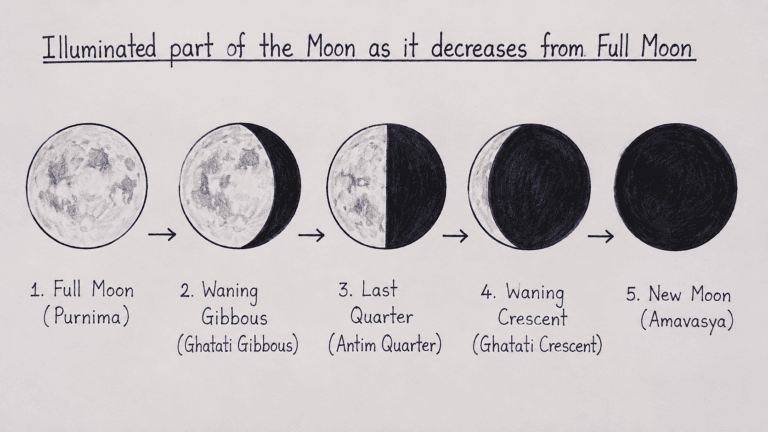 Illuminated part of the Moon as it decreases from Full Moon
1. Full Moon
(Purnima)
2. Waning
Gibbous
(Ghatati Gibbous)
3. Last
Quarter
(Antim Quarter)
4. Waning
Crescent
(Ghatati Crescent)
5. New Moon
(Amavasya)